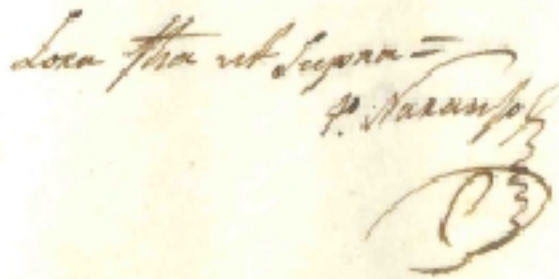 Lora fha ut Supra =
P. Naranjo